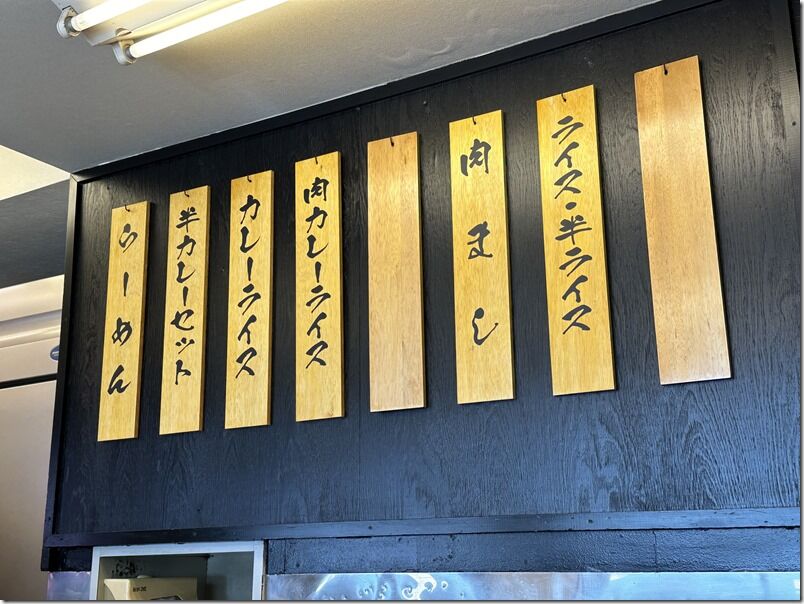 らーめん
半カレーセット
カレーライス
肉カレーライス
肉まし
ライス・半ライス